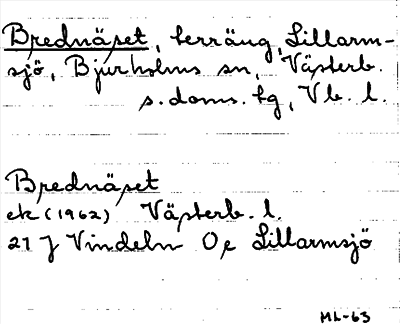 Brednäset, terräng, Lillarm-
sjö, Bjurholms sn, Västerb.
s. doms. hg, Vb. l.
Brednäset
ek (1962) Västerb. l.
21 J Vindeln Oe Lillarmsjö
ML-63